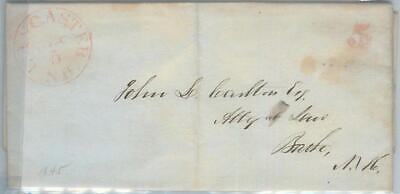 LANCASTER
5
N.H.
5
John L. Carleton Esq.
Atty at Law
Bath,
N.H.
1845